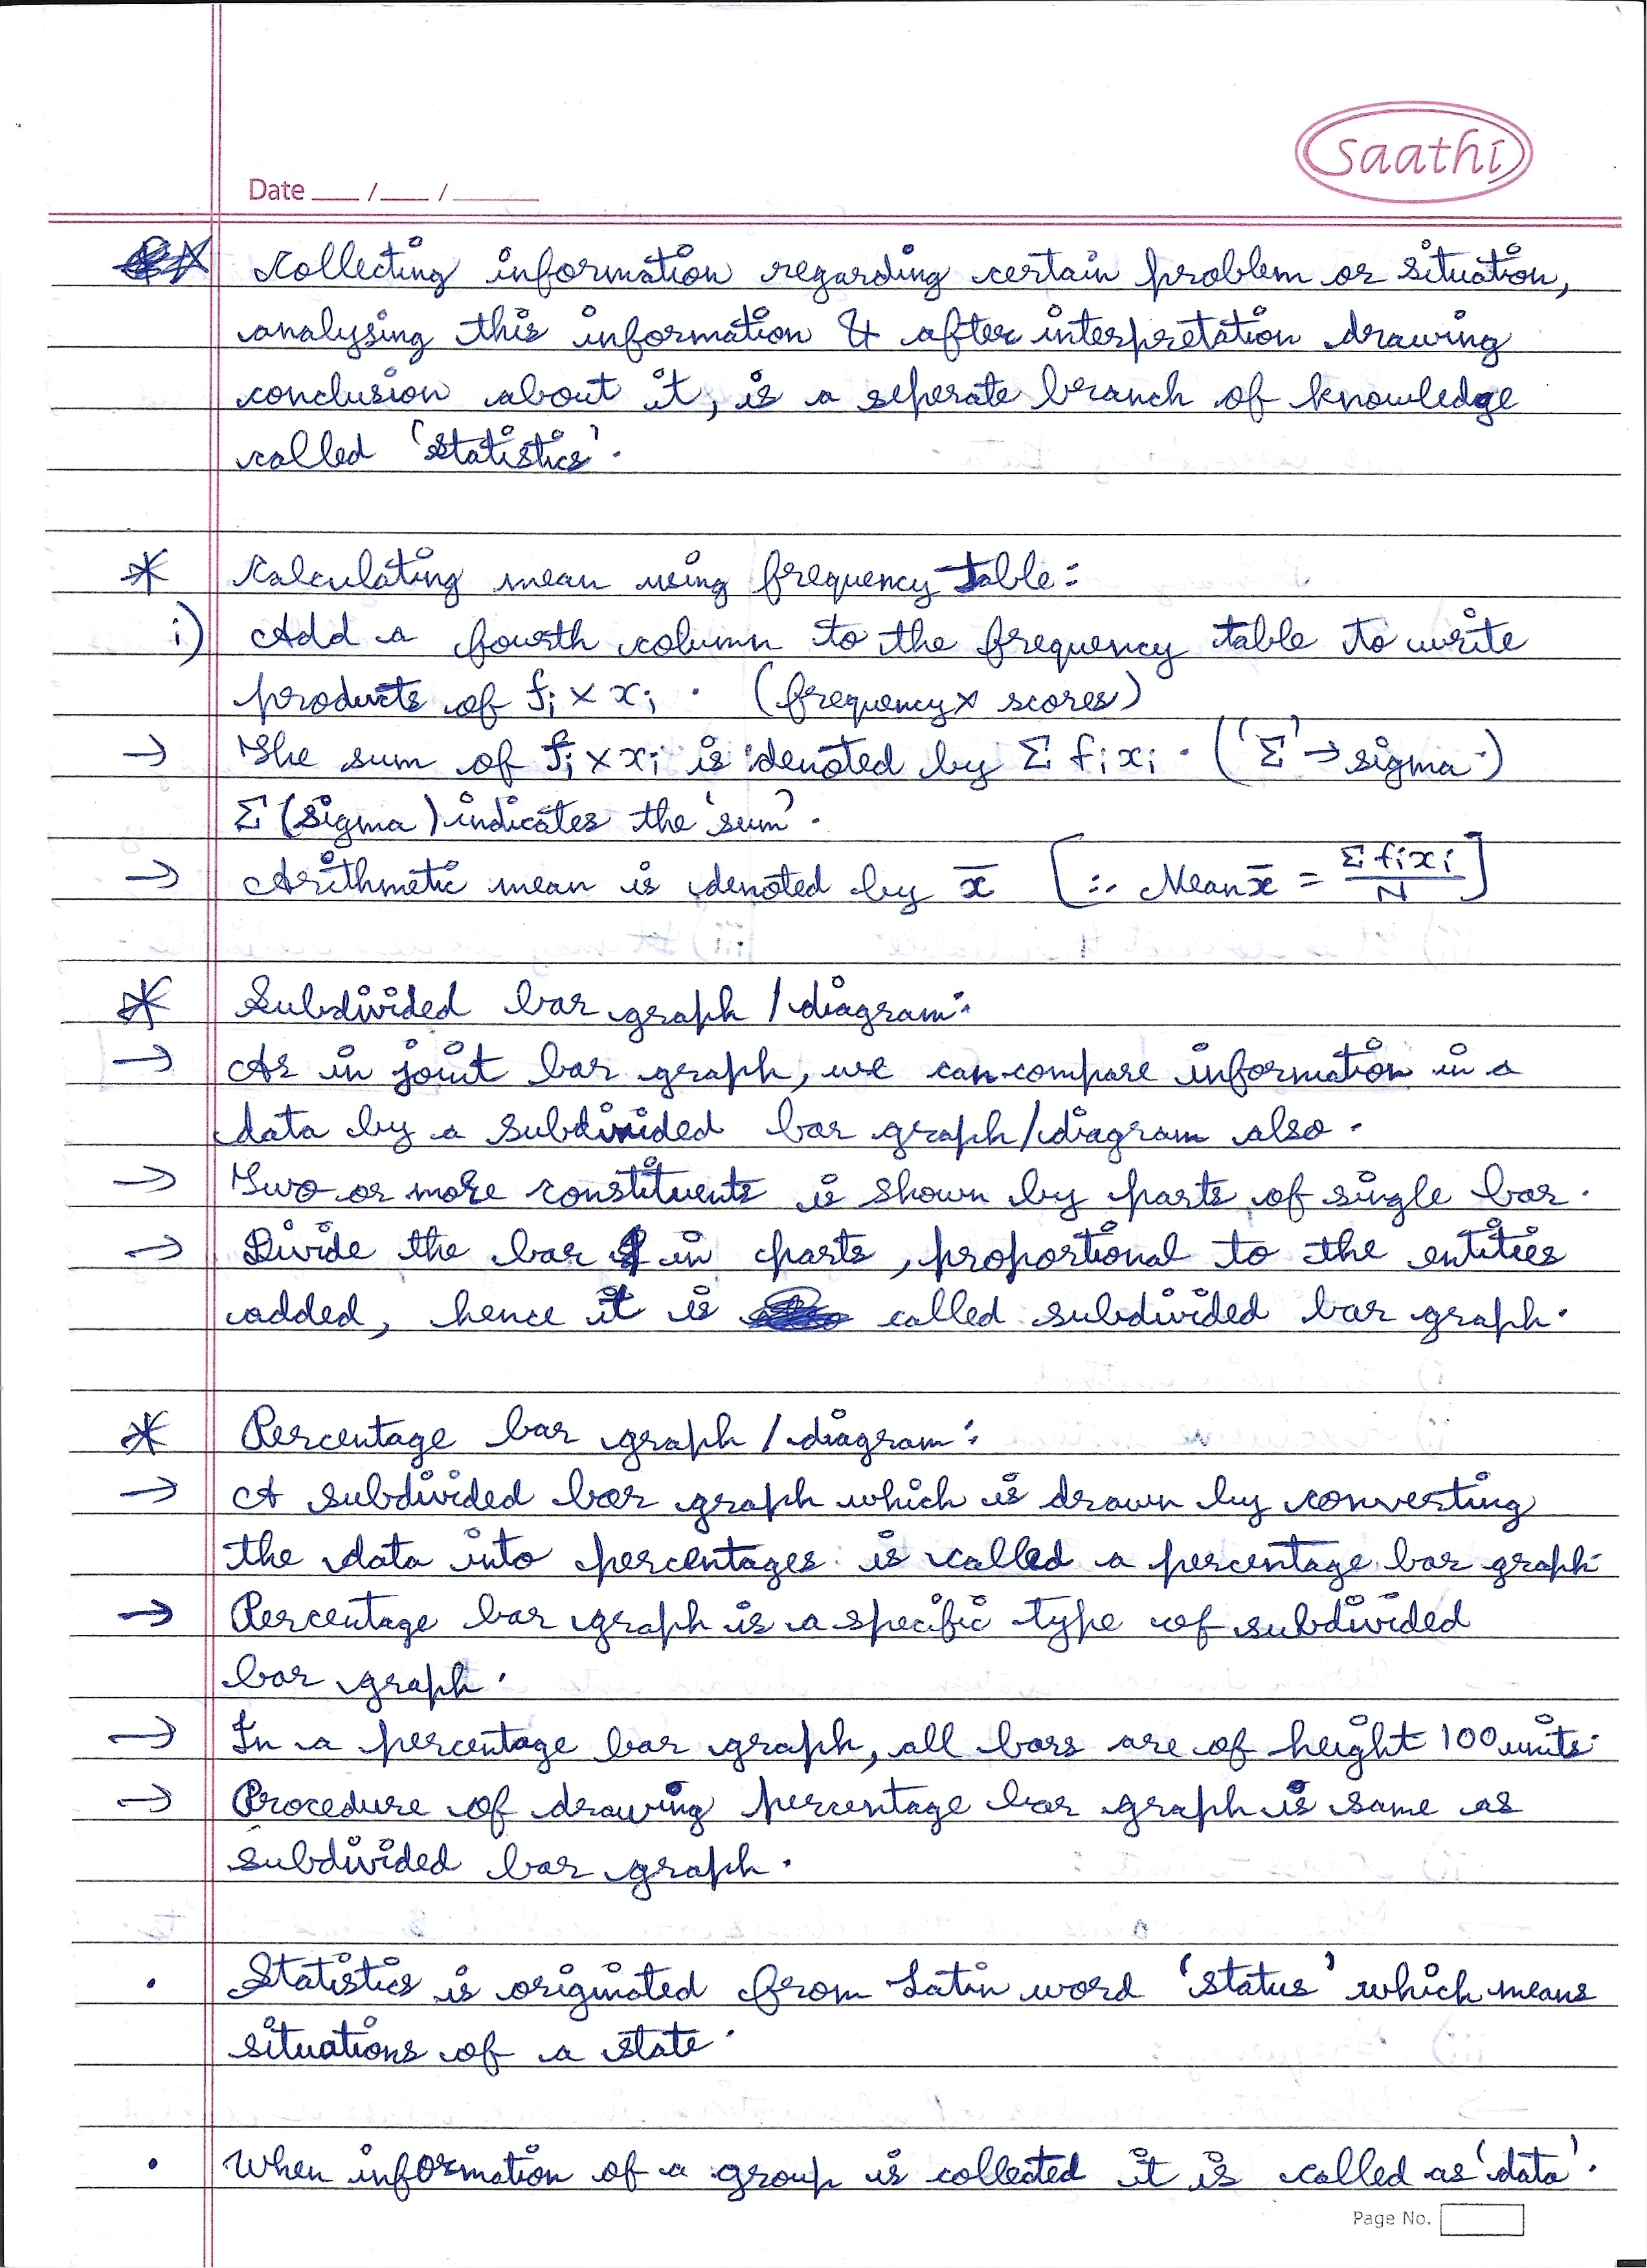 saathi
Date ___ / ___ / ______
Collecting information regarding certain problem or situation,
analysing this information & after interpretation drawing
conclusion about it, is a seperate branch of knowledge
called 'statistics'.
* Calculating mean using frequency table:
i) Add a fourth column to the frequency table to write
products of fi × xi . (frequency × scores)
→ The sum of fi × xi is denoted by Σ fi xi . ('Σ' → sigma.)
Σ (sigma) indicates the 'sum'.
→ Arithmetic mean is denoted by x̄ [∴ Mean x̄ = Σ fi xi / N]
* Subdivided bar graph / diagram:
→ As in joint bar graph, we can compare information in a
data by a subdivided bar graph/diagram also.
→ Two or more constituents is shown by parts of single bar.
→ Divide the bar in parts, proportional to the entities
added, hence it is called subdivided bar graph.
* Percentage bar graph / diagram:
→ A subdivided bar graph which is drawn by converting
the data into percentages is called a percentage bar graph.
→ Percentage bar graph is a specific type of subdivided
bar graph.
→ In a percentage bar graph, all bars are of height 100 units.
→ Procedure of drawing percentage bar graph is same as
subdivided bar graph.
• Statistics is originated from Latin word 'status' which means
situations of a state.
• When information of a group is collected it is called as 'data'.
Page No.